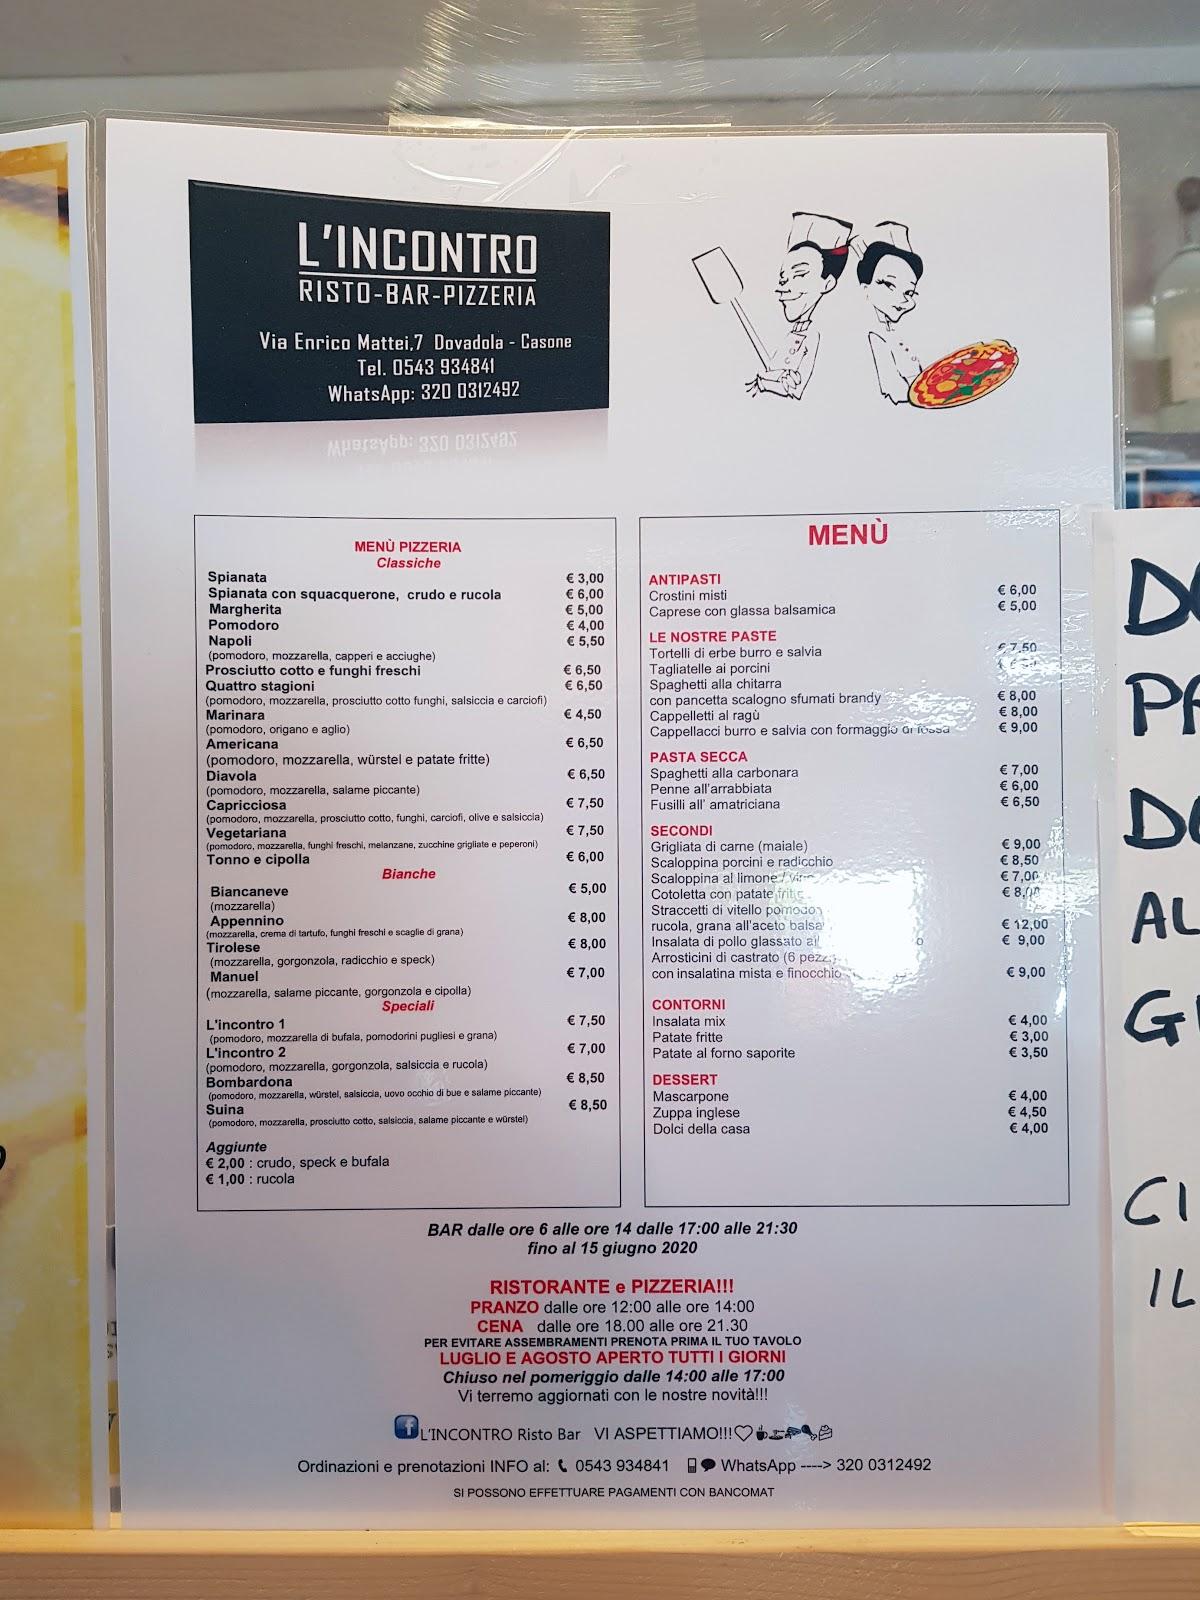 L'INCONTRO
RISTO-BAR-PIZZERIA
Via Enrico Mattei,7 Dovadola - Casone
Tel. 0543 934841
WhatsApp: 320 0312492
MENÙ PIZZERIA
Classiche
Spianata € 3,00
Spianata con squacquerone, crudo e rucola € 6,00
Margherita € 5,00
Pomodoro € 4,00
Napoli € 5,50
(pomodoro, mozzarella, capperi e acciughe)
Prosciutto cotto e funghi freschi € 6,50
Quattro stagioni € 6,50
(pomodoro, mozzarella, prosciutto cotto funghi, salsiccia e carciofi)
Marinara € 4,50
(pomodoro, origano e aglio)
Americana € 6,50
(pomodoro, mozzarella, würstel e patate fritte)
Diavola € 6,50
(pomodoro, mozzarella, salame piccante)
Capricciosa € 7,50
(pomodoro, mozzarella, prosciutto cotto, funghi, carciofi, olive e salsiccia)
Vegetariana € 7,50
(pomodoro, mozzarella, funghi freschi, melanzane, zucchine grigliate e peperoni)
Tonno e cipolla € 6,00
Bianche
Biancaneve € 5,00
(mozzarella)
Appennino € 8,00
(mozzarella, crema di tartufo, funghi freschi e scaglie di grana)
Tirolese € 8,00
(mozzarella, gorgonzola, radicchio e speck)
Manuel € 7,00
(mozzarella, salame piccante, gorgonzola e cipolla)
Speciali
L'incontro 1 € 7,50
(pomodoro, mozzarella di bufala, pomodorini pugliesi e grana)
L'incontro 2 € 7,00
(pomodoro, mozzarella, gorgonzola, salsiccia e rucola)
Bombardona € 8,50
(pomodoro, mozzarella, würstel, salsiccia, uovo occhio di bue e salame piccante)
Suina € 8,50
(pomodoro, mozzarella, prosciutto cotto, salsiccia, salame piccante e würstel)
Aggiunte
€ 2,00 : crudo, speck e bufala
€ 1,00 : rucola
MENÙ
ANTIPASTI
Crostini misti € 6,00
Caprese con glassa balsamica € 5,00
LE NOSTRE PASTE
Tortelli di erbe burro e salvia € 7,50
Tagliatelle ai porcini
Spaghetti alla chitarra
con pancetta scalogno sfumati brandy € 8,00
Cappelletti al ragù € 8,00
Cappellacci burro e salvia con formaggio di fossa € 9,00
PASTA SECCA
Spaghetti alla carbonara € 7,00
Penne all'arrabbiata € 6,00
Fusilli all' amatriciana € 6,50
SECONDI
Grigliata di carne (maiale) € 9,00
Scaloppina porcini e radicchio € 8,50
Scaloppina al limone / € 7,00
Cotoletta con patate fritte € 8,00
Straccetti di vitello
rucola, grana all'aceto € 12,00
Insalata di pollo glassato € 9,00
Arrosticini di castrato (6
con insalatina mista e finocchio € 9,00
CONTORNI
Insalata mix € 4,00
Patate fritte € 3,00
Patate al forno saporite € 3,50
DESSERT
Mascarpone € 4,00
Zuppa inglese € 4,50
Dolci della casa € 4,00
BAR dalle ore 6 alle ore 14 dalle 17:00 alle 21:30
fino al 15 giugno 2020
RISTORANTE e PIZZERIA!!!
PRANZO dalle ore 12:00 alle ore 14:00
CENA dalle ore 18.00 alle ore 21.30
PER EVITARE ASSEMBRAMENTI PRENOTA PRIMA IL TUO TAVOLO
LUGLIO E AGOSTO APERTO TUTTI I GIORNI
Chiuso nel pomeriggio dalle 14:00 alle 17:00
Vi terremo aggiornati con le nostre novità!!!
L'INCONTRO Risto Bar VI ASPETTIAMO!!!
Ordinazioni e prenotazioni INFO al: 0543 934841 WhatsApp ----> 320 0312492
SI POSSONO EFFETTUARE PAGAMENTI CON BANCOMAT
AL
CI
IL